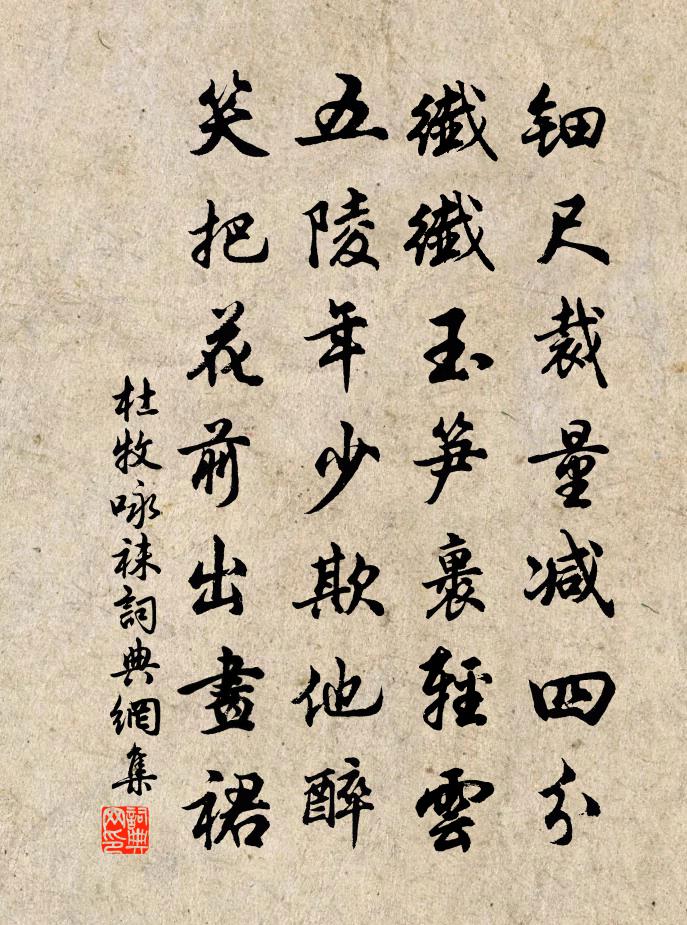 鈿尺裁量減四分
纖纖玉笋裹輕雲
五陵年少欺他醉
笑把花前出畫裙
杜牧咏袜詞典網集
詞典网印